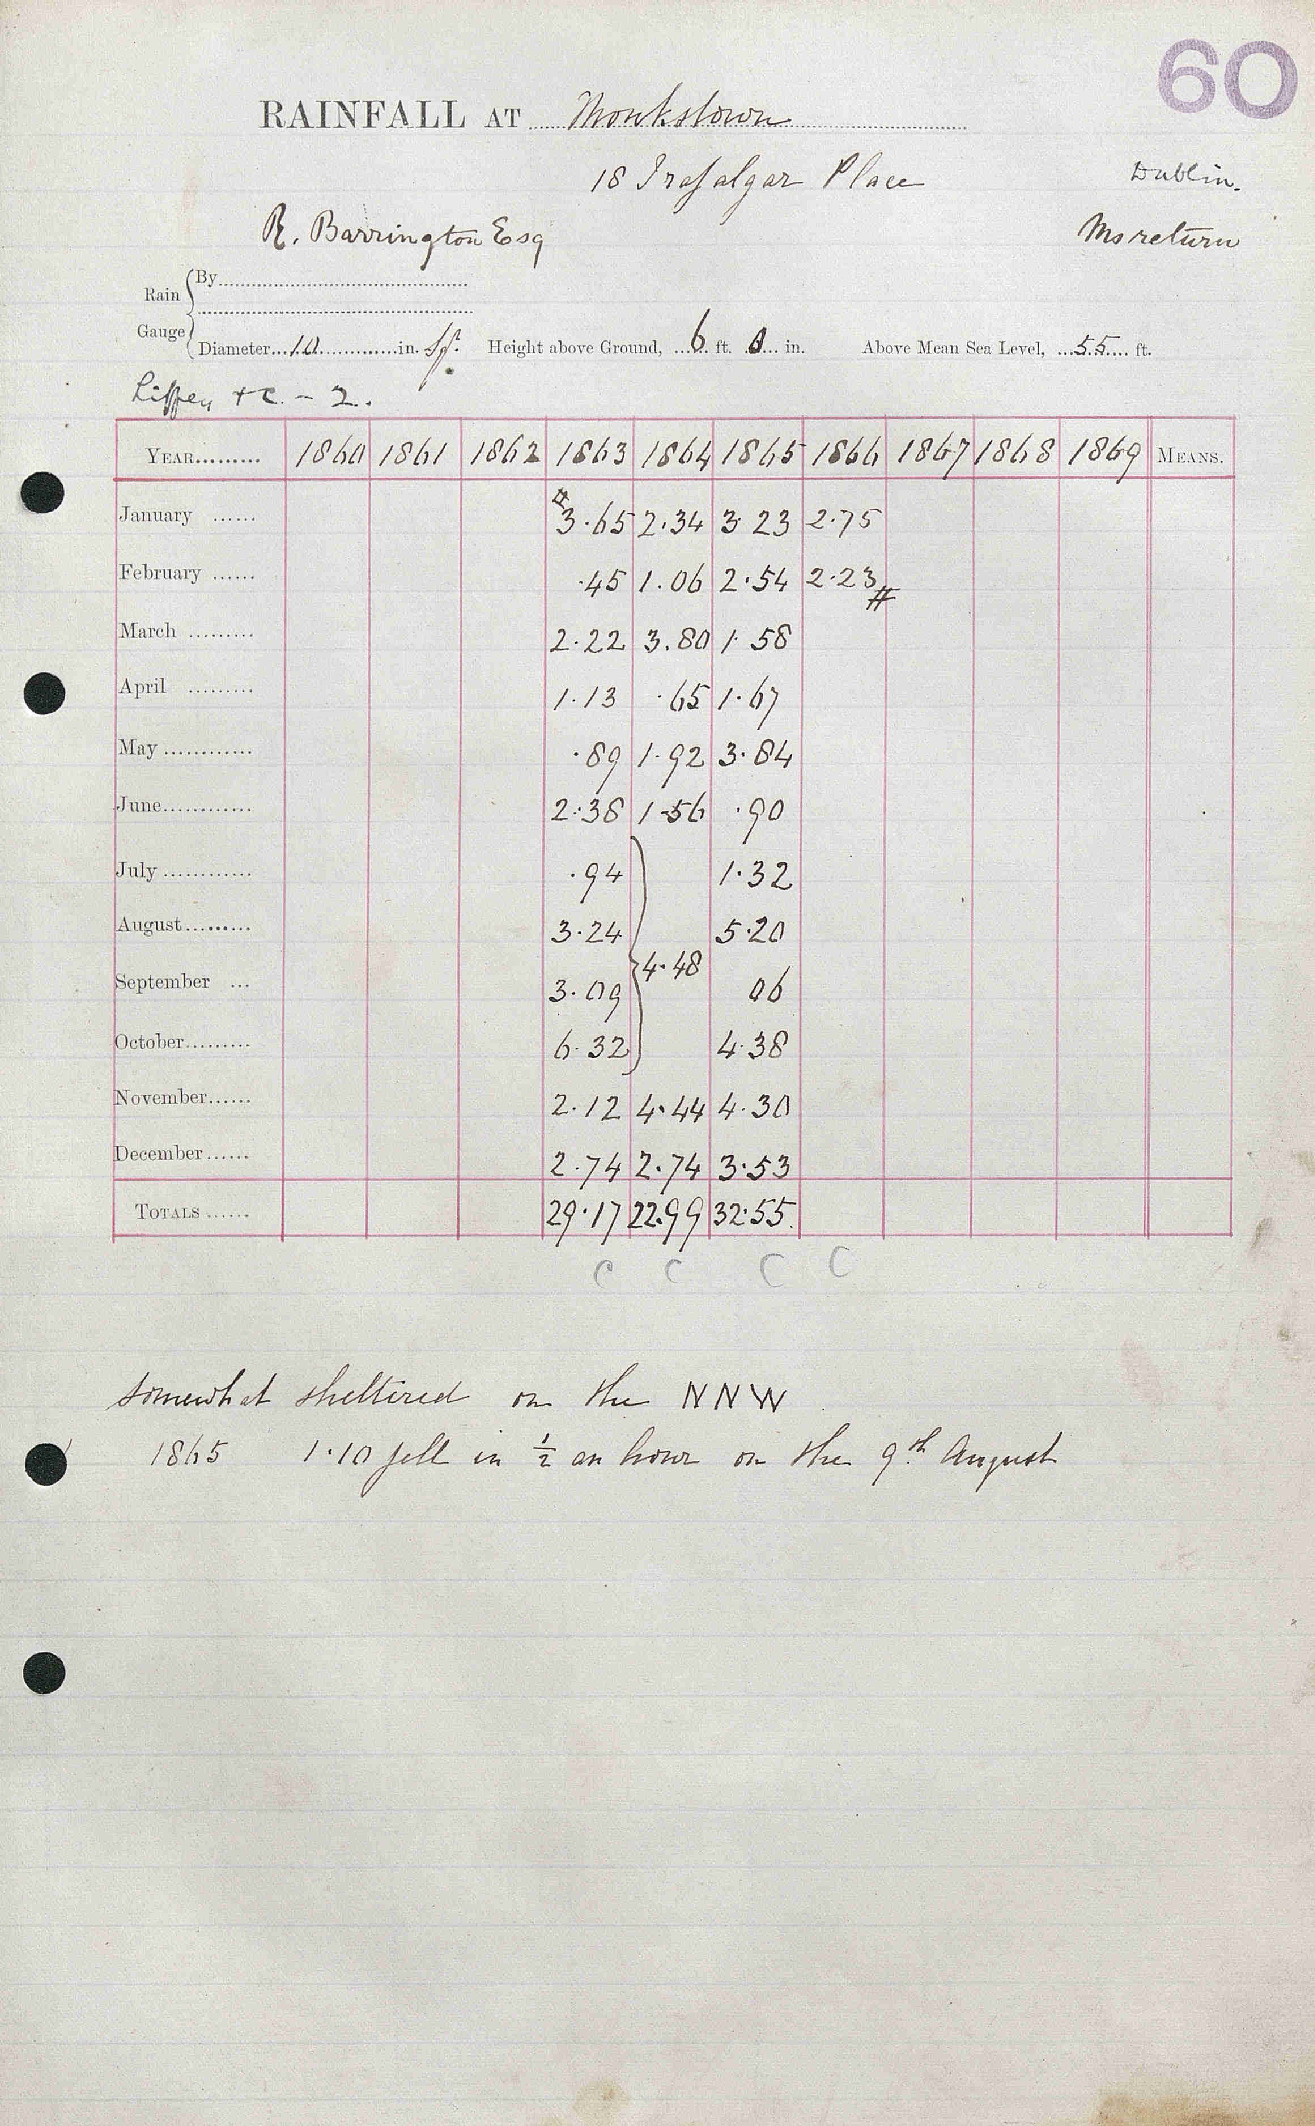 60
RAINFALL AT Monkstown
18 Trafalgar Place Dublin.
R. Barrington Esq Ms return
Rain Gauge { By
Diameter 10 in. Height above Ground, 6 ft. 0 in. Above Mean Sea Level, 55 ft.
Liffey &c. - 2.
YEAR 1860 1861 1862 1863 1864 1865 1866 1867 1868 1869 MEANS.
January # 3.65 2.34 3 23 2.75
February .45 1.06 2.54 2.23 #
March 2.22 3.80 1.58
April 1.13 .65 1.67
May .89 1.92 3.84
June 2.38 1.56 .90
July .94 1.32
August 3.24 5.20
September 3.09 } 4.48 06
October 6.32 4.38
November 2.12 4.44 4.30
December 2.74 2.74 3.53
TOTALS 29.17 22.99 32.55
C C C C
Somewhat sheltered on the NNW
1865 1.10 fell in ½ an hour on the 9th August